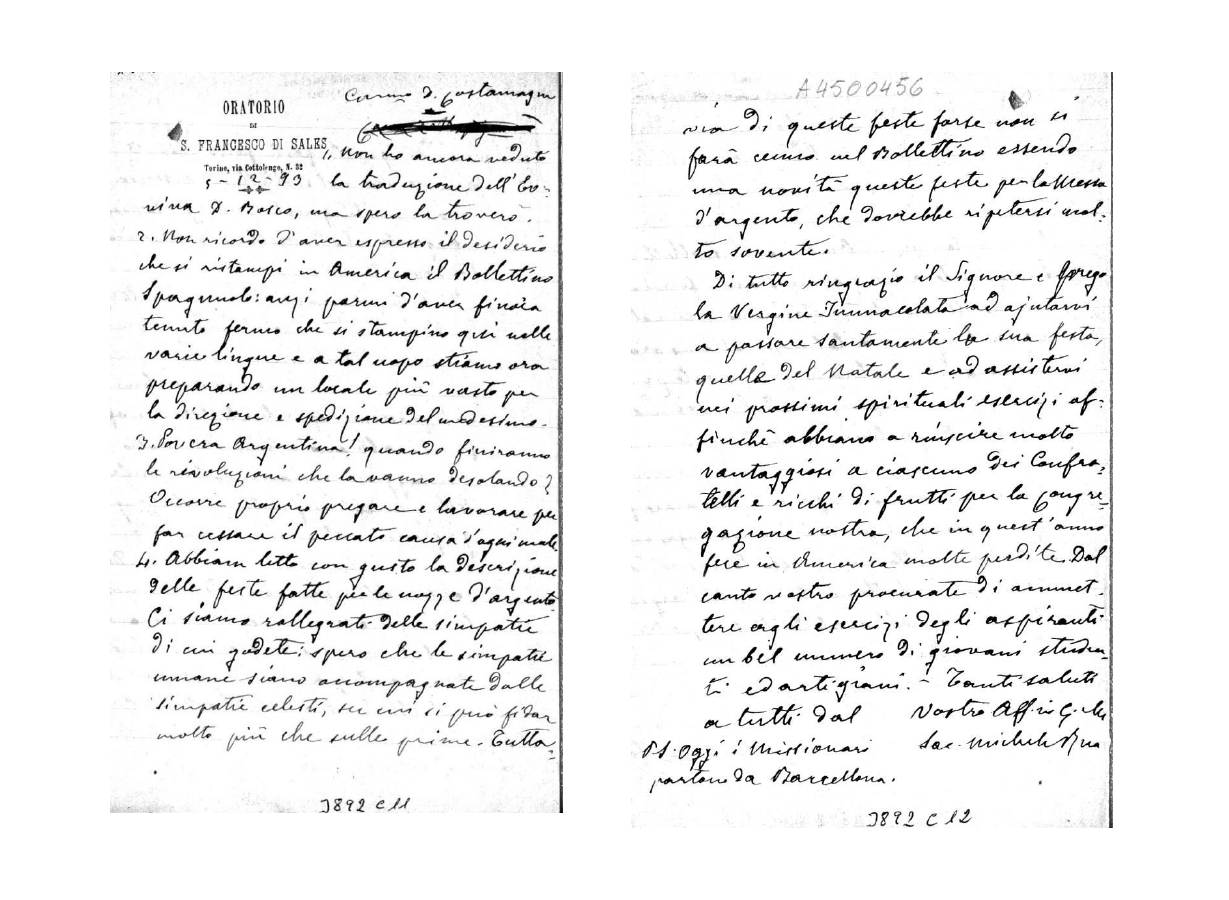 Carmo D. Costamagna
ORATORIO
DI
S. FRANCESCO DI SALES
Torino, via Cottolengo, N. 32
5-12-93
1. Non ho ancora veduto
la traduzione dell'Ev-
viva D. Bosco, ma spero la troverò.
2. Non ricordo d'aver espresso il desiderio
che si ristampi in America il Bollettino
Spagnuolo: anzi parmi d'aver finora
tenuto fermo che si stampino qui nelle
varie lingue e a tal uopo stiamo ora
preparando un locale più vasto per
la direzione e spedizione del medesimo.
3. Povera Argentina! quando finiranno
le rivoluzioni che la vanno desolando?
Occorre proprio pregare e lavorare per
far cessare il peccato causa d'ogni male
4. Abbiam letto con gusto la descrizione
delle feste fatte per le nozze d'argento.
Ci siamo rallegrati delle simpatie
di cui godete: spero che le simpatie
umane siano accompagnate dalle
simpatie celesti, su cui si può fidar
molto più che sulle prime. Tutta-
J892 C 11
A4500456
via di queste feste forse non si
farà cenno nel Bollettino essendo
una novità queste feste per la Messa
d'argento, che dovrebbe ripetersi mol-
to sovente.
Di tutto ringrazio il Signore e prego
la Vergine Immacolata ad ajutarvi
a passare santamente la sua festa,
quella del Natale e ad assistervi
nei prossimi spirituali esercizi af-
finchè abbiano a riuscire molto
vantaggiosi a ciascuno dei Confra-
telli e ricchi di frutti per la Congre-
gazione nostra, che in quest'anno
fece in America molte perdite. Dal
canto vostro procurate di ammet-
tere agli esercizi degli aspiranti
un bel numero di giovani studen-
ti ed artigiani. - Tanti saluti
a tutti dal Vostro Aff. in G. e M.
Sac. Michele Rua
P.S. Oggi i Missionari
partono da Barcellona.
J892 C 12